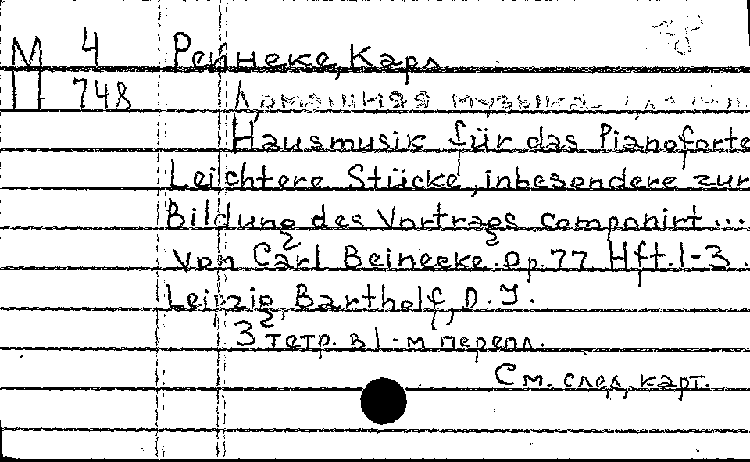 М 4 Рейнеке, Карл
П 748 Домашняя музыка
Hausmusik für das Pianoforte
Leichtere Stücke, inbesondere zur
Bildung des Vortrags componirt ...
von Carl Beinecke. Op. 77 Hft. 1-3.
Leipzig, Bartholf, O. J.
3 тетр. в 1-м перепл.
См. след. карт.